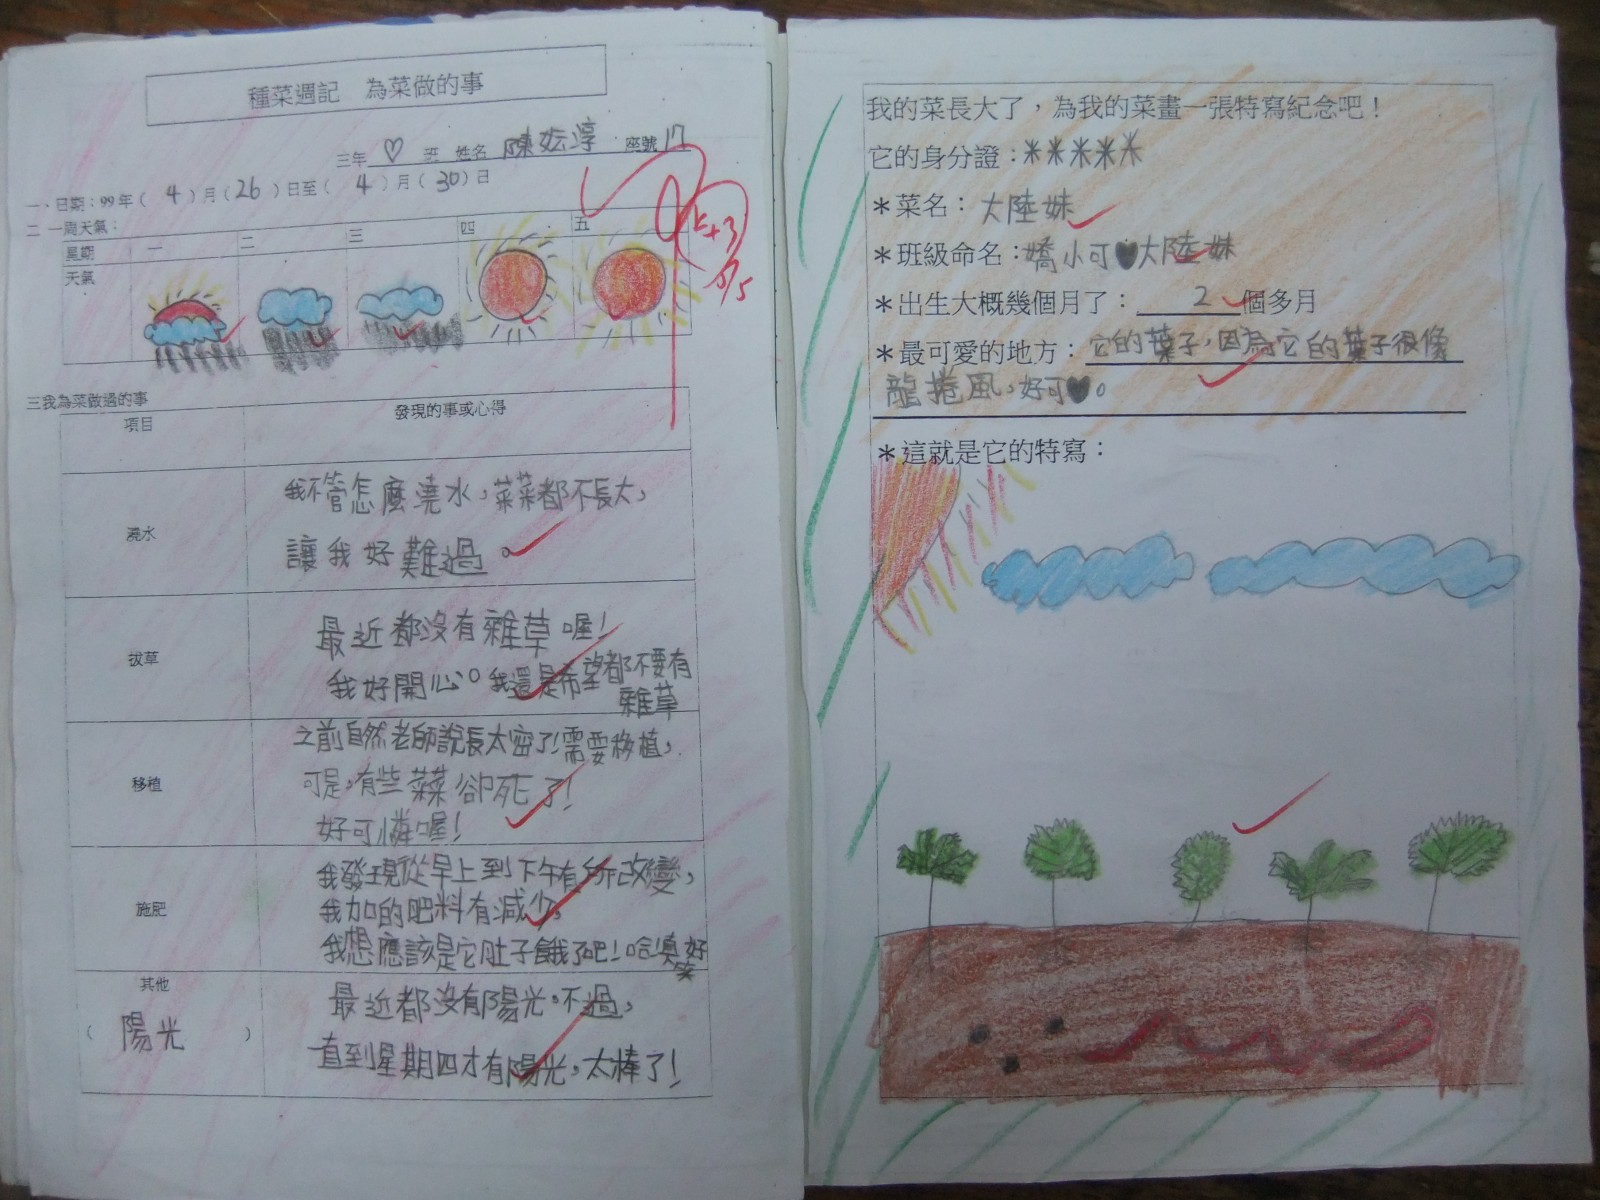 種菜週記　為菜做的事
三年 ♡ 班 姓名 陳妘淳 座號 17
一．日期：99年（4）月（26）日至（4）月（30）日
二 一周天氣：
星期 一 二 三 四 五
天氣
三我為菜做過的事
項目 發現的事或心得
澆水
我不管怎麼澆水，菜菜都不長大，
讓我好難過。
拔草
最近都沒有雜草喔！
我好開心。我還是希望都不要有
雜草
移植
之前自然老師說長太密了！需要移植，
可是，有些菜菜卻死了！
好可憐喔！
施肥
我發現從早上到下午有所改變，
我加的肥料有減少，
我想應該是它肚子餓了吧！哈！真好
笑
其他
（ 陽光 ）
最近都沒有陽光。不過，
一直到星期四才有陽光，太棒了！
我的菜長大了，為我的菜畫一張特寫紀念吧！
它的身分證：＊＊＊＊＊
＊菜名：大陸妹
＊班級命名：嬌小可♥大陸妹
＊出生大概幾個月了：2個多月
＊最可愛的地方：它的葉子，因為它的葉子很像
龍捲風，好可♥。
＊這就是它的特寫：